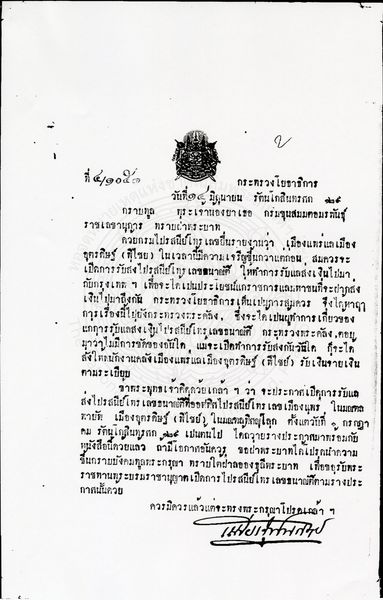 ที่
กระทรวงโยธาธิการ
วันที่ มิถุนายน รัตนโกสินทรศก
กราบทูล พระเจ้าน้องยาเธอ กรมขุนสมมตอมรพันธุ์
ราชเลขานุการ ทราบฝ่าพระบาท
ด้วยกรมไปรสนีย์โทรเลขยื่นรายงานว่า เมืองแพร่แลเมือง
อุตรดิษฐ์ (ที่ไชย) ในเวลานี้มีความเจริญขึ้นกว่าแต่ก่อน สมควรจะ
เปิดการรับส่งไปรสนีย์โทรเลขธนาณัติ ให้ทำการรับแลส่งเงินไปมา
กับกรุงเทพ ฯ เพื่อจะได้เปนประโยชน์แก่ราชการแลมหาชนที่จะฝากส่ง
เงินไปมาถึงกัน กระทรวงโยธาธิการเห็นเปนการสมควร จึงได้หารือ
การเรื่องนี้ไปยังกระทรวงพระคลัง, ซึ่งจะเปนผู้ทำการเกี่ยวของ
แก่การรับแลส่งเงินไปรสนีย์โทรเลขธนาณัติ กระทรวงพระคลัง ตอบ
มาว่าไม่มีการขัดข้องอันใด แม้จะเปิดทำการรับส่งกันวันใด ก็จะได้
สั่งให้พนักงานคลังเมืองแพร่แลเมืองอุตรดิษฐ์ (ที่ไชย) รับเงินจ่ายเงิน
ตามระเบียบ
ข้าพระพุทธเจ้าคิดด้วยเกล้า ฯ ว่า จะประกาศเปิดการรับแล
ส่งไปรสนีย์โทรเลขธนาณัติที่ออฟฟิศไปรสนีย์โทรเลขเมืองแพร่ ในมณฑล
พายัพ เมืองอุตรดิษฐ์ (ที่ไชย) ในมณฑลพิศณุโลก ตั้งแต่วันที่ กรกฎา
คม รัตนโกสินทรศก เปนต้นไป ได้ถวายร่างประกาศมาพร้อมกับ
หนังสือนี้ด้วยแล้ว ถ้ามีโอกาศอันควร ขอฝ่าพระบาทได้โปรดนำความ
ขึ้นกราบบังคมทูลพระกรุณา ทราบใต้ฝ่าลอองธุลีพระบาท เพื่อขอรับพระ
ราชทานพระบรมราชานุญาตเปิดการไปรสนีย์โทรเลขธนาณัติตามร่างประ
กาศนั้นด้วย
ควรมิควรแล้วแต่จะทรงพระกรุณาโปรดเกล้า ฯ